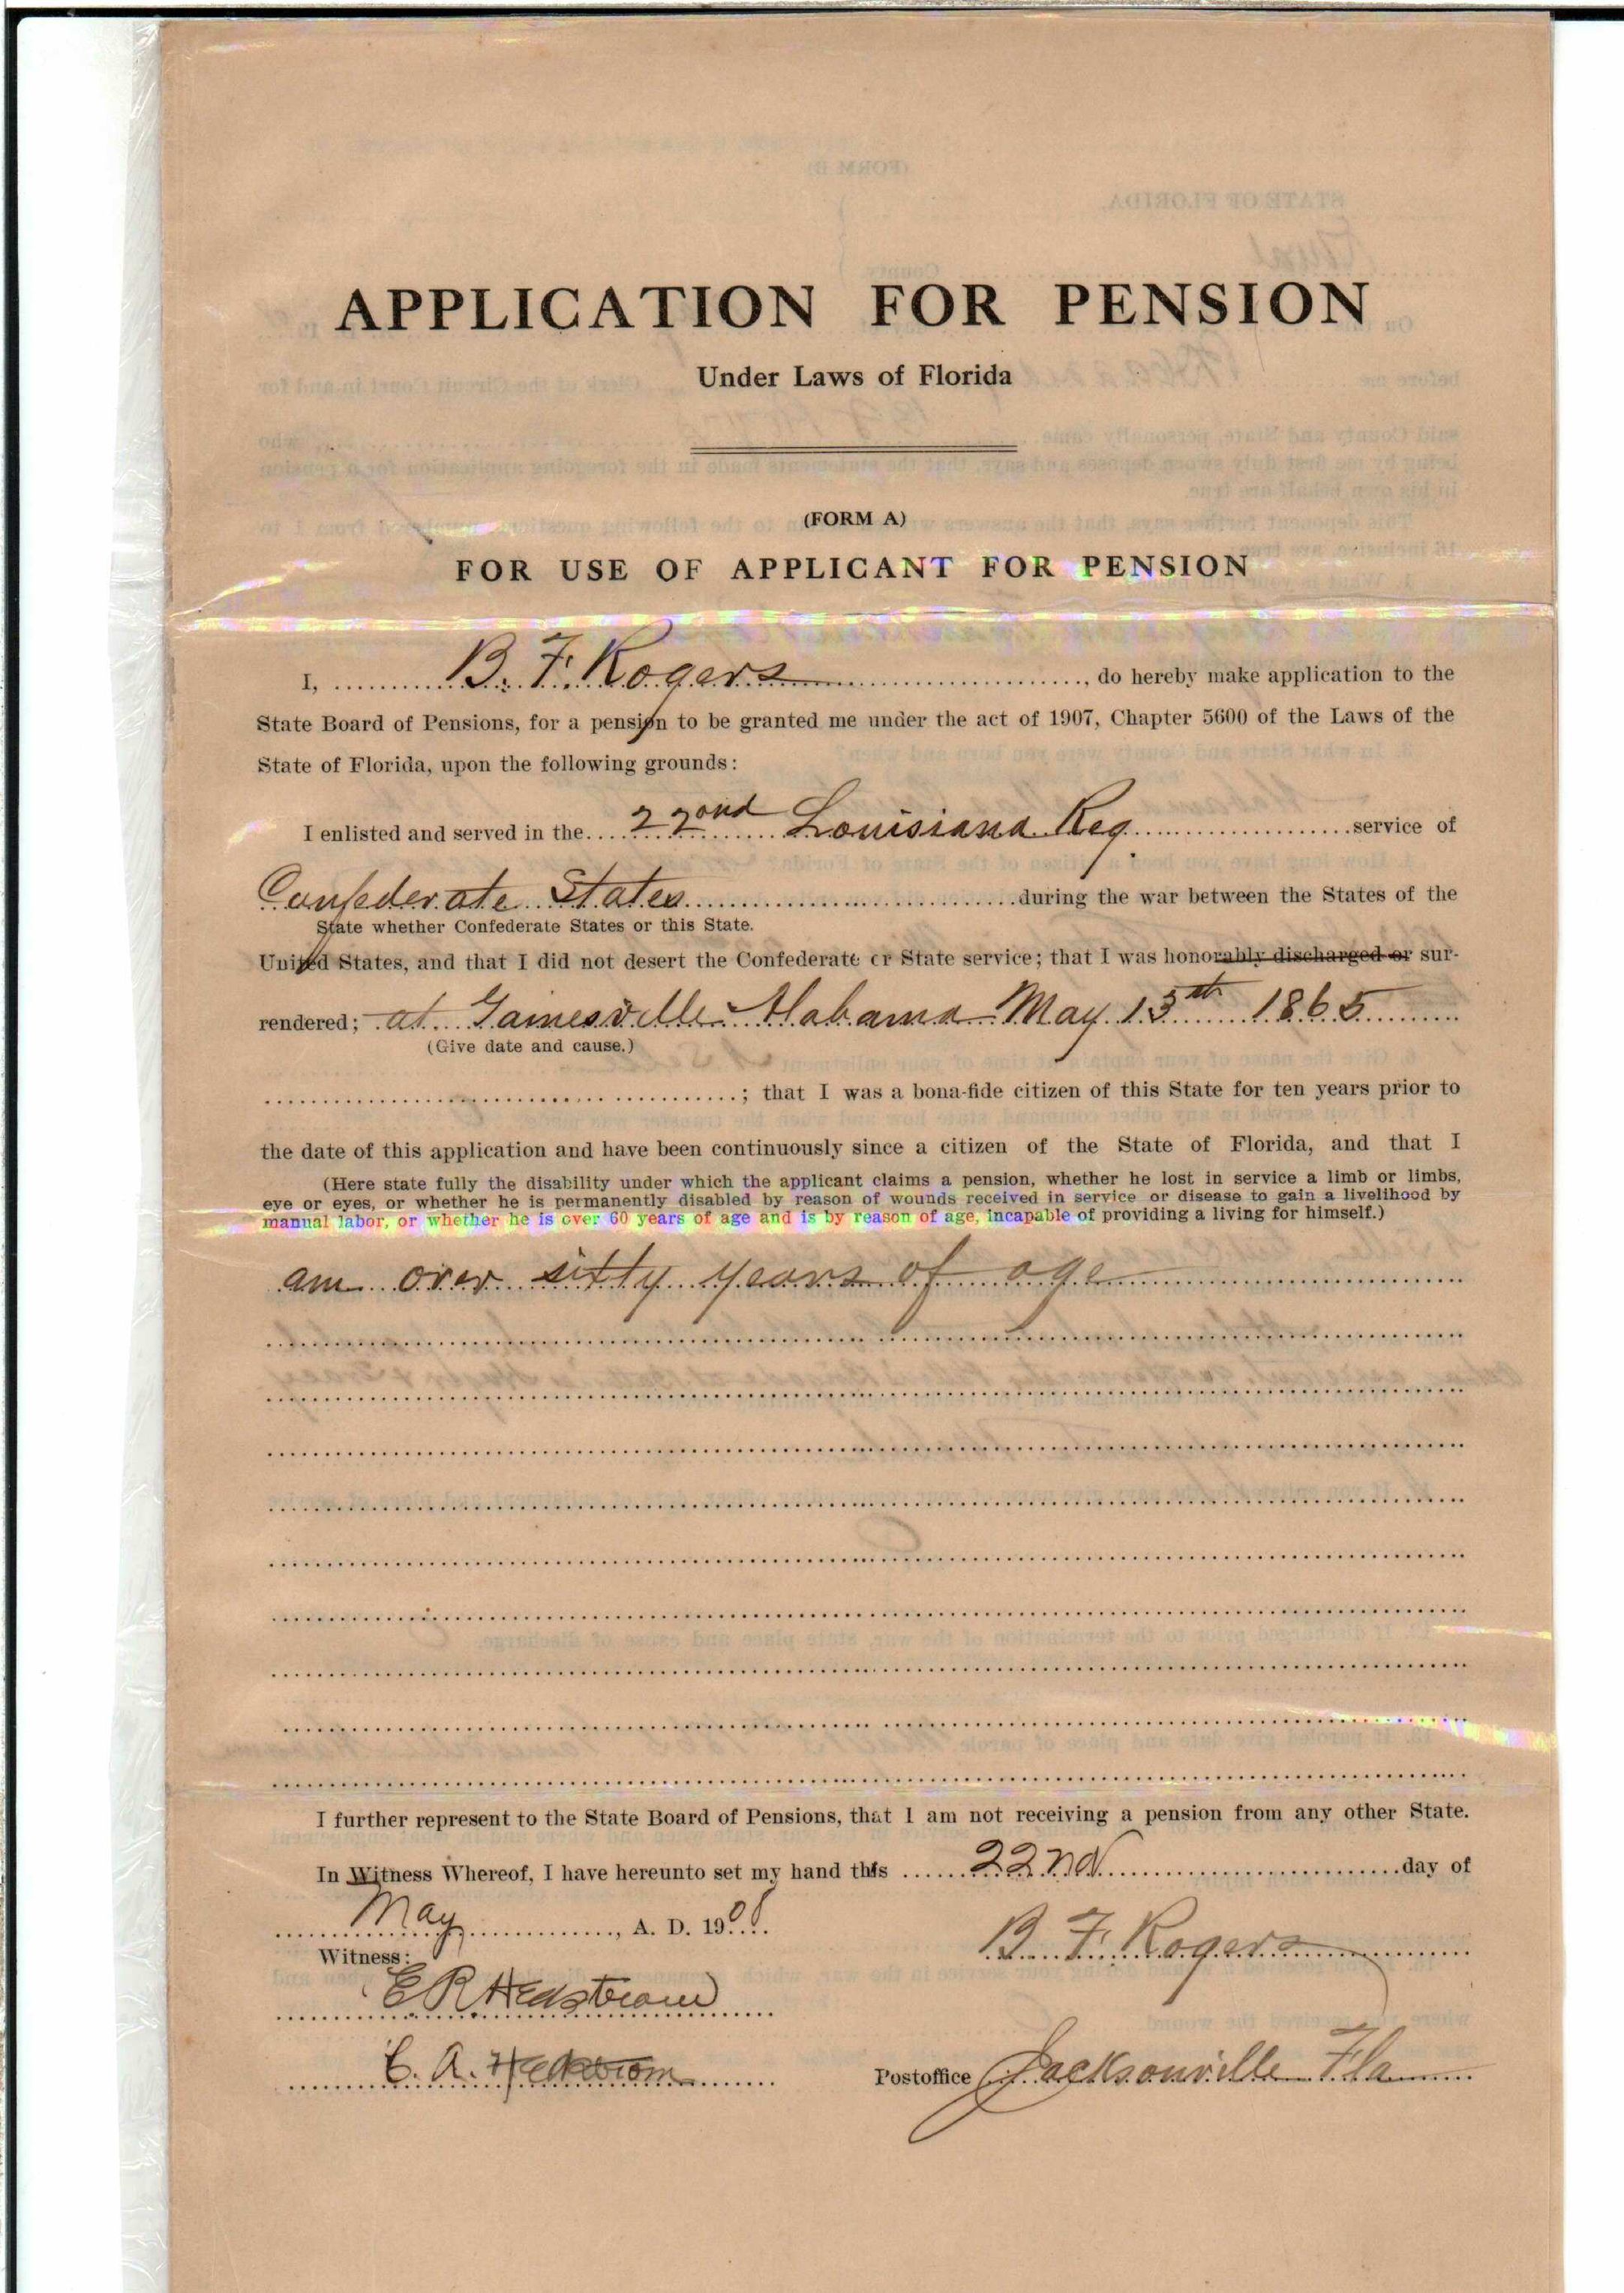 APPLICATION FOR PENSION
Under Laws of Florida
(FORM A)
FOR USE OF APPLICANT FOR PENSION
I, B. F. Rogers, do hereby make application to the
State Board of Pensions, for a pension to be granted me under the act of 1907, Chapter 5600 of the Laws of the
State of Florida, upon the following grounds:
I enlisted and served in the 22ond Louisiana Reg. service of
Confederate States during the war between the States of the
State whether Confederate States or this State.
United States, and that I did not desert the Confederate or State service; that I was honorably discharged or sur-
rendered; at Gainesville Alabama May 13th 1865
(Give date and cause.)
; that I was a bona-fide citizen of this State for ten years prior to
the date of this application and have been continuously since a citizen of the State of Florida, and that I
(Here state fully the disability under which the applicant claims a pension, whether he lost in service a limb or limbs,
eye or eyes, or whether he is permanently disabled by reason of wounds received in service or disease to gain a livelihood by
manual labor, or whether he is over 60 years of age and is by reason of age, incapable of providing a living for himself.)
am over sixty years of age
I further represent to the State Board of Pensions, that I am not receiving a pension from any other State.
In Witness Whereof, I have hereunto set my hand this 22nd day of
May, A. D. 1908.
B. F. Rogers
Witness:
E R Hedstrom
C. A. Hedstrom
Postoffice Jacksonville Fla